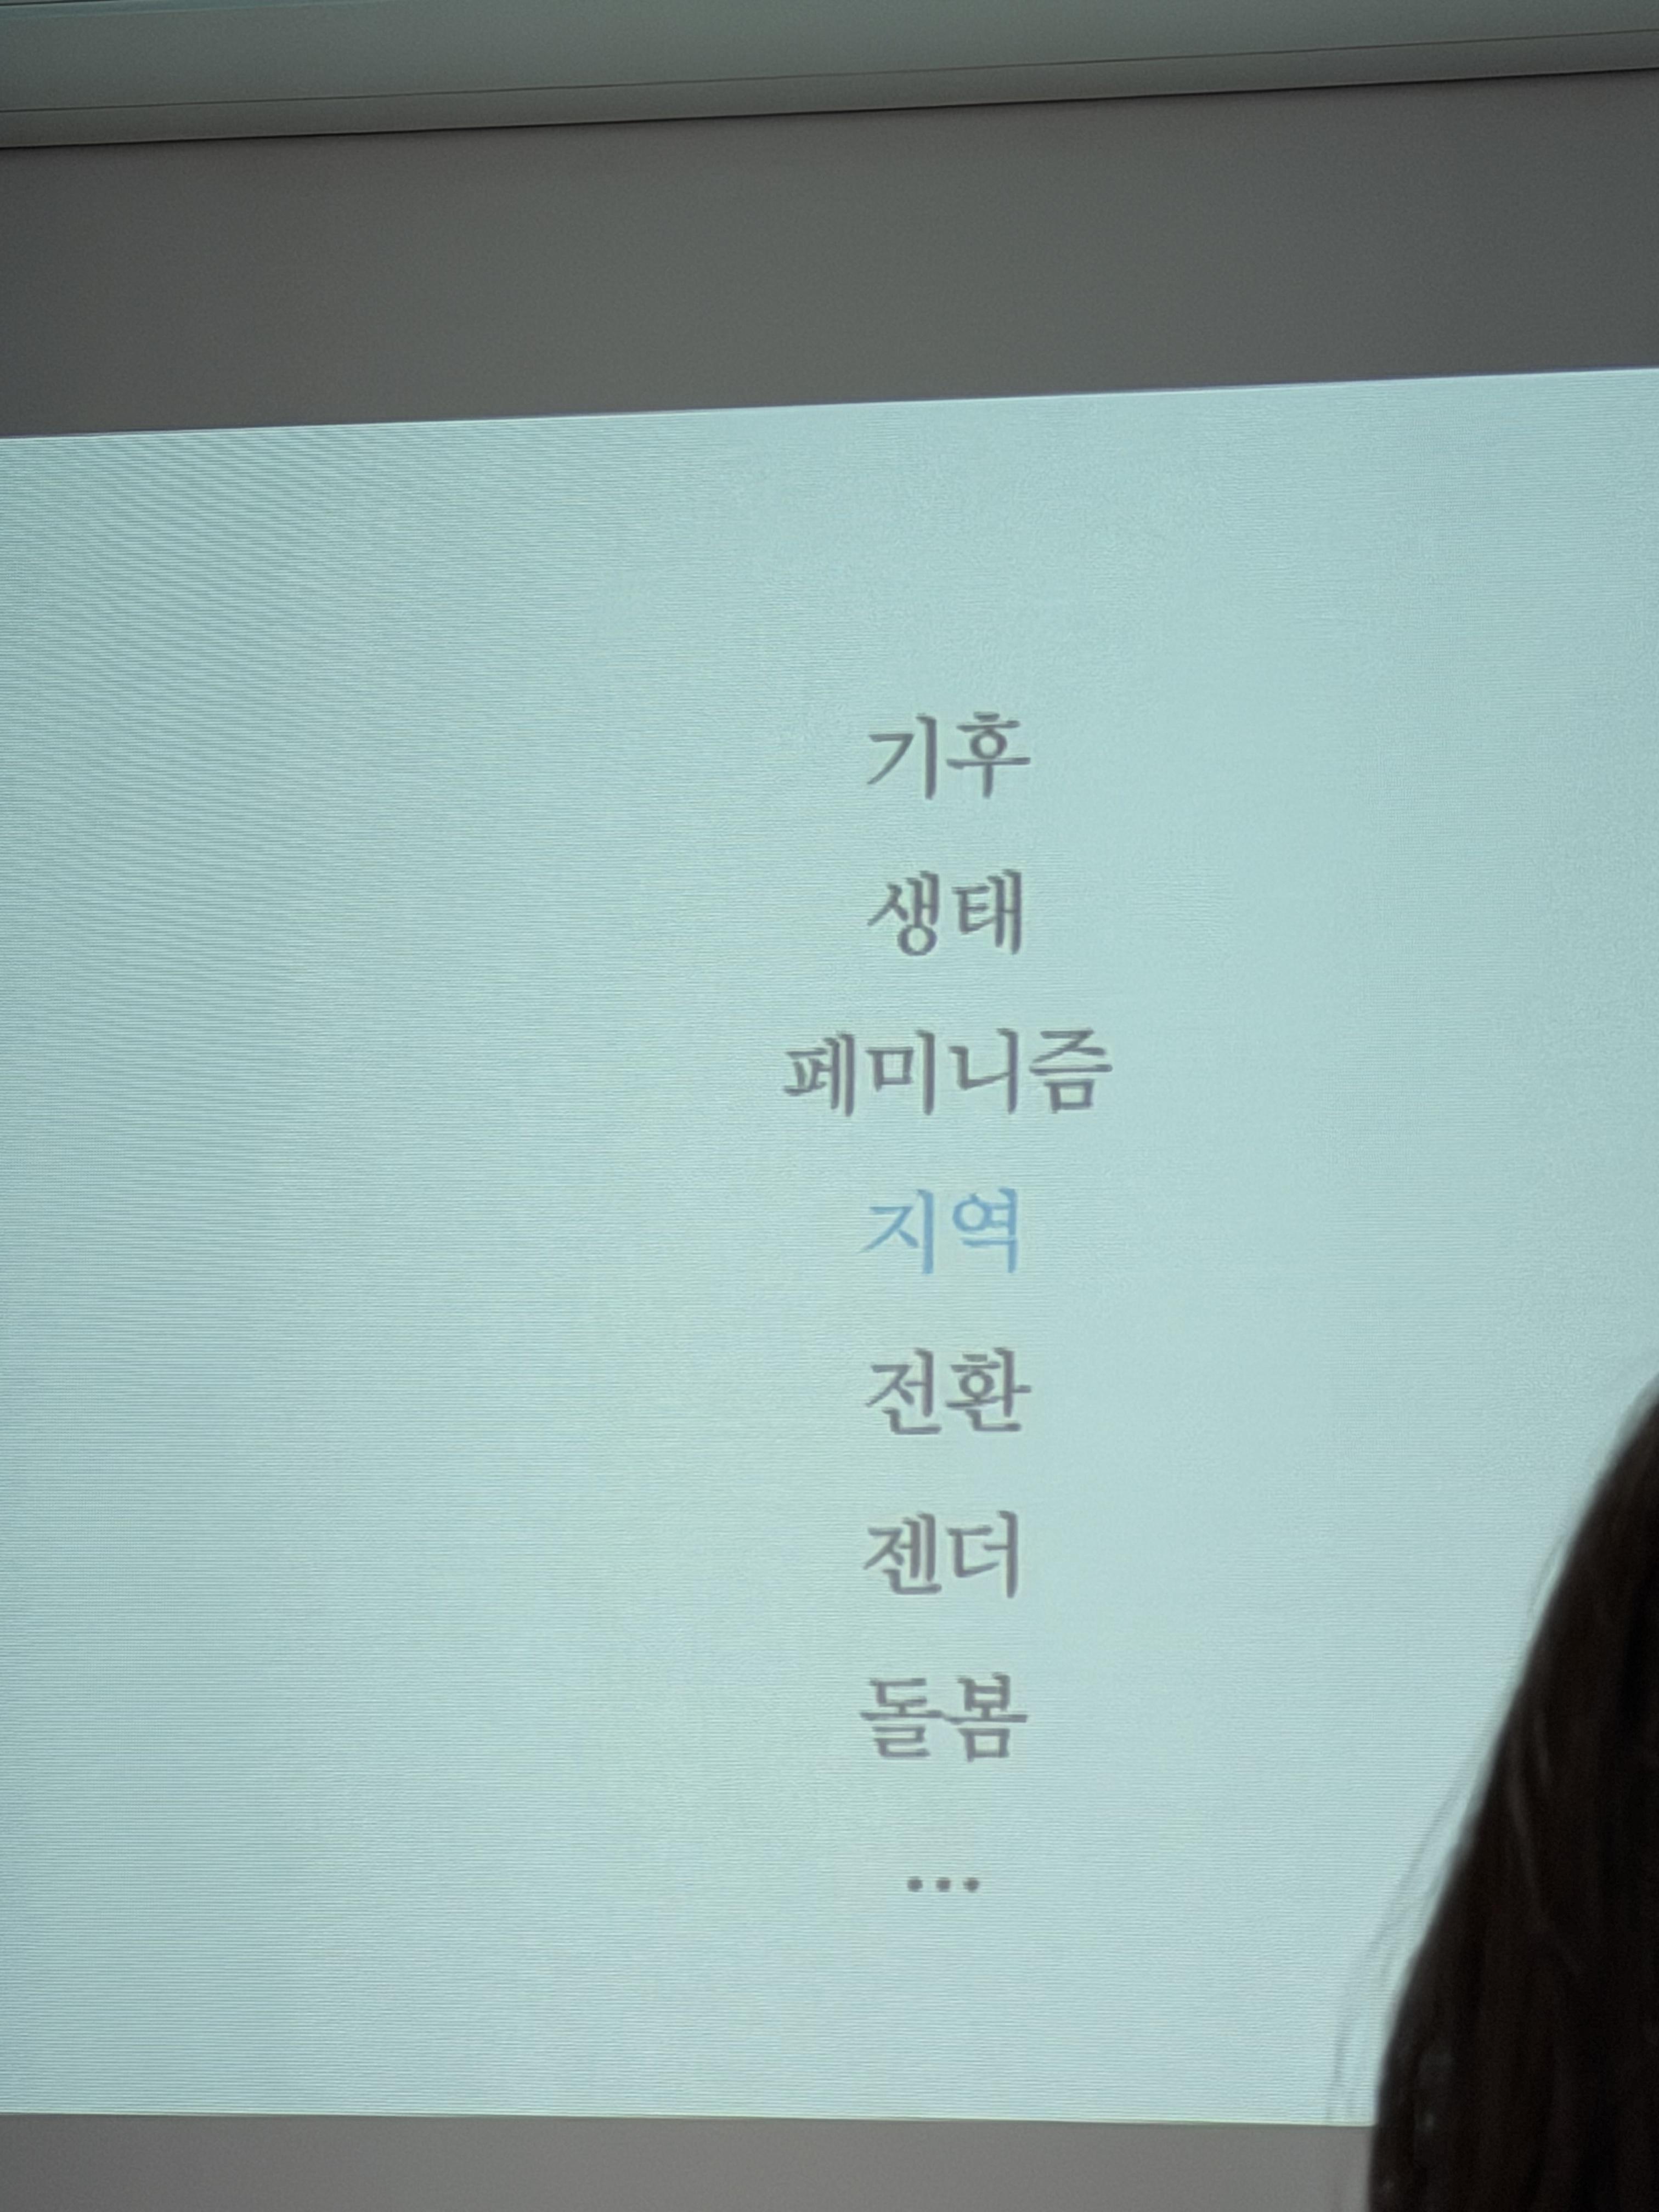 기후
생태
페미니즘
지역
전환
젠더
돌봄
...